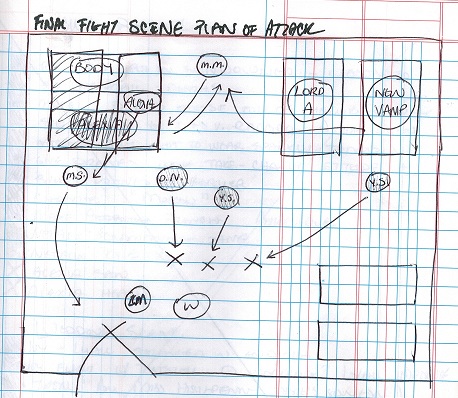 FINAL FIGHT SCENE PLAN OF ATTACK
BODY
M.M.
LORD
A
NON
VAMP
M.S.
D.N.
Y.S.
Y.S.
W